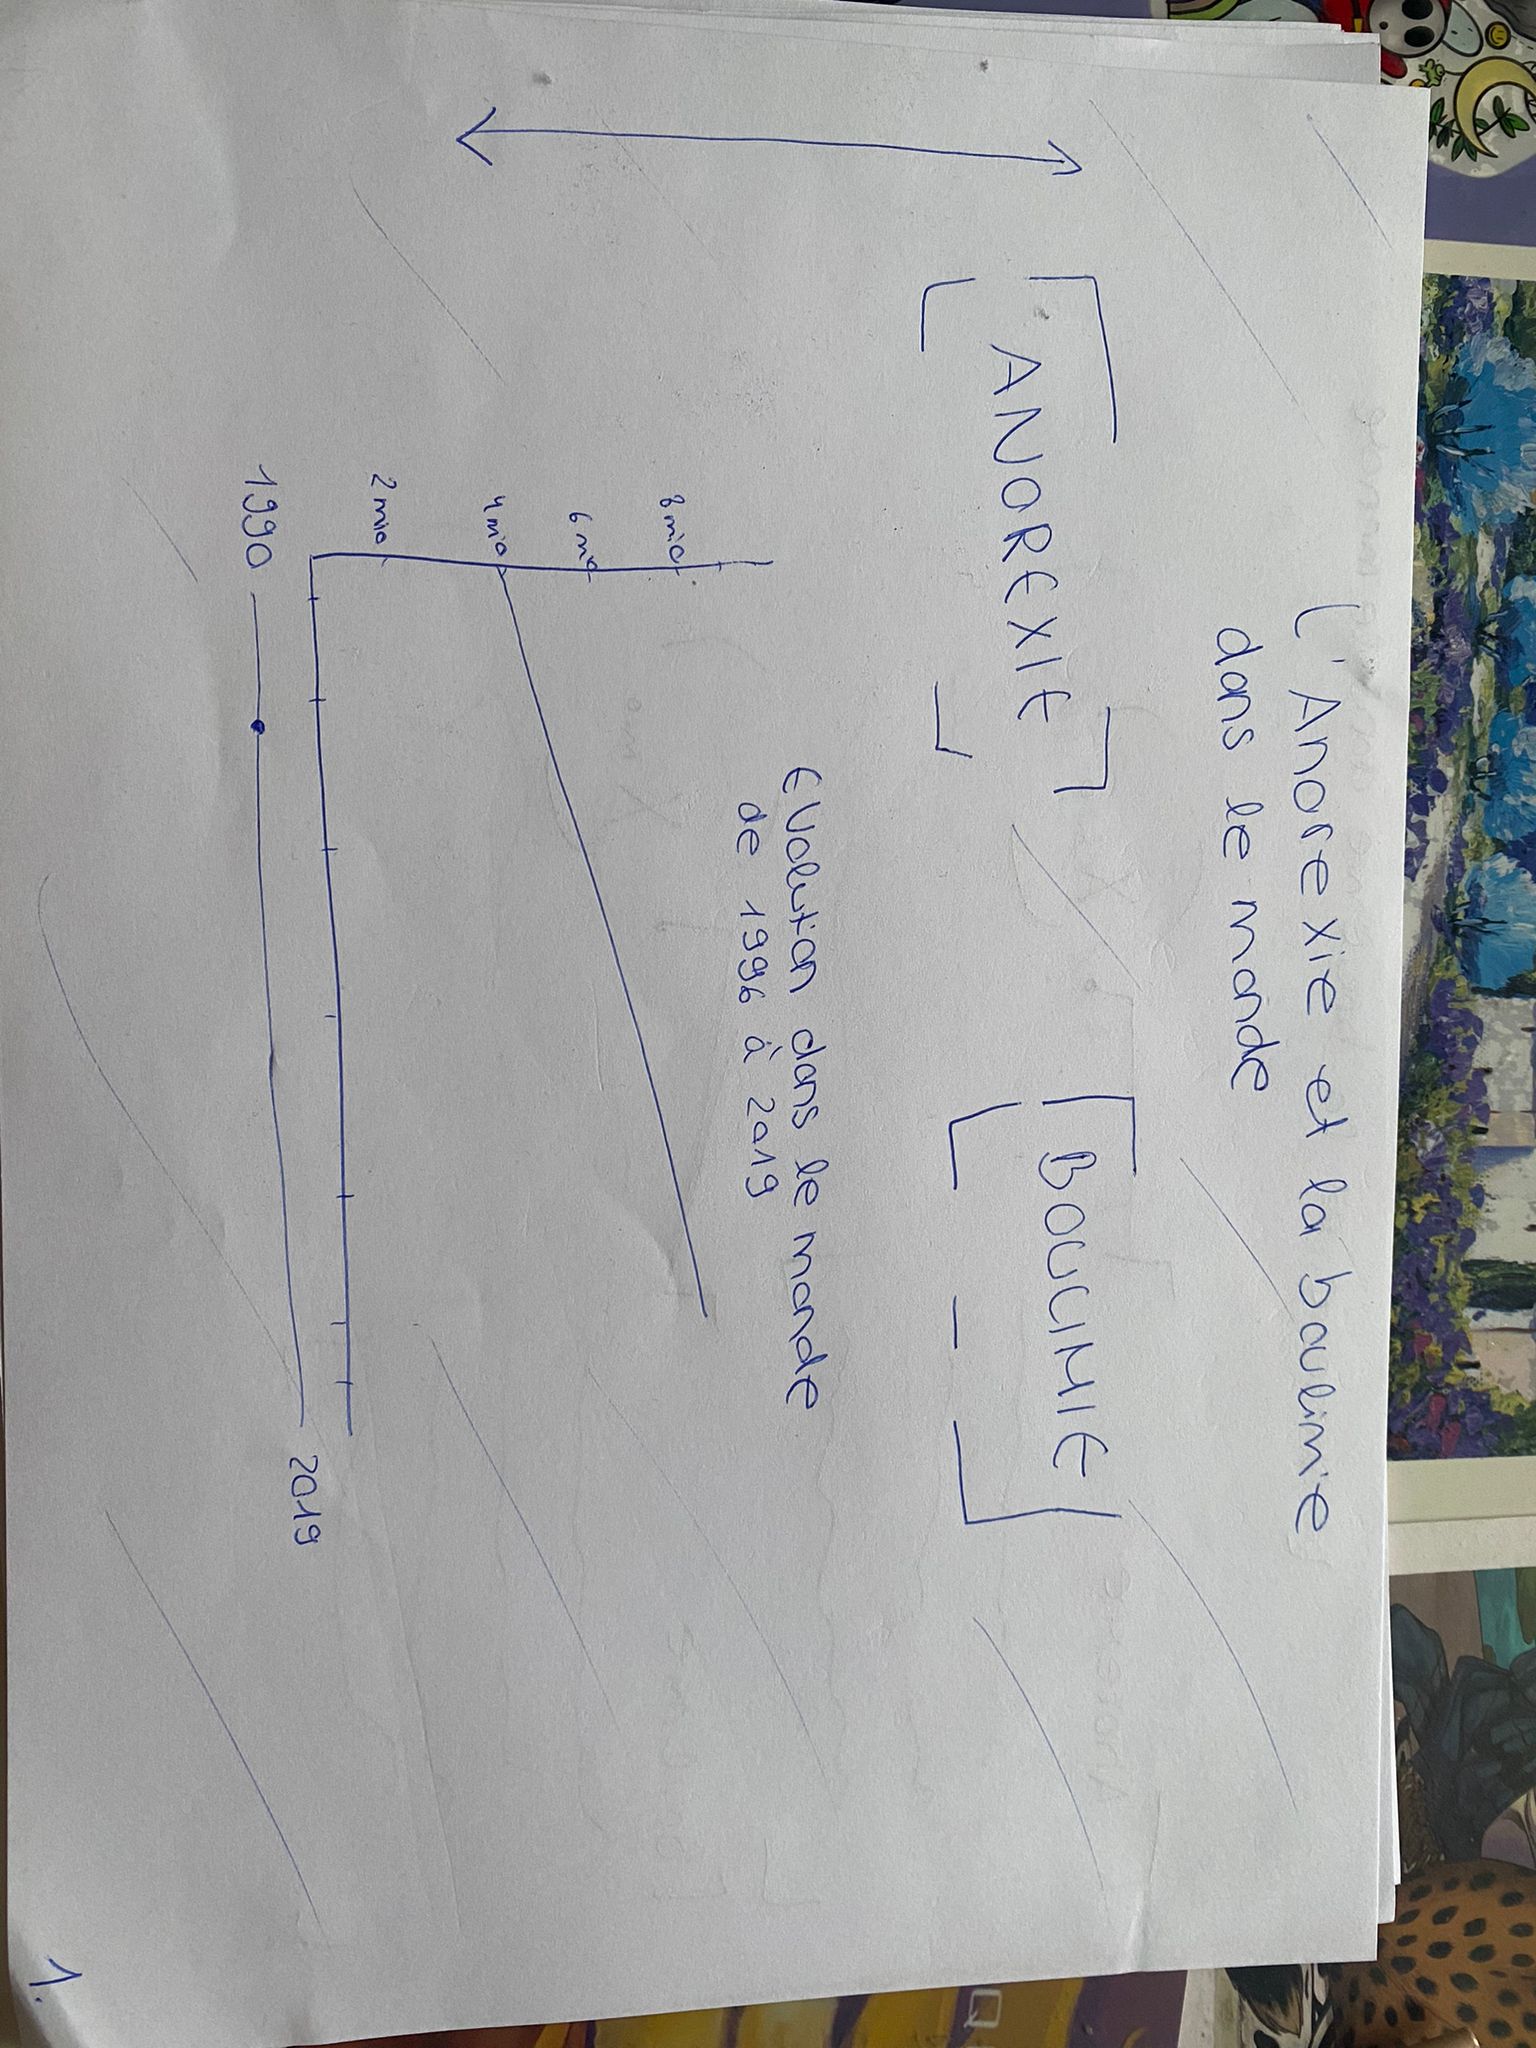 L'Anorexie et la boulimie
dans le monde
ANOREXIE
BOULIMIE
Evolution dans le monde
de 1996 à 2019
8 mio
6 mio
4 mio
2 mio
1990
2019
1.